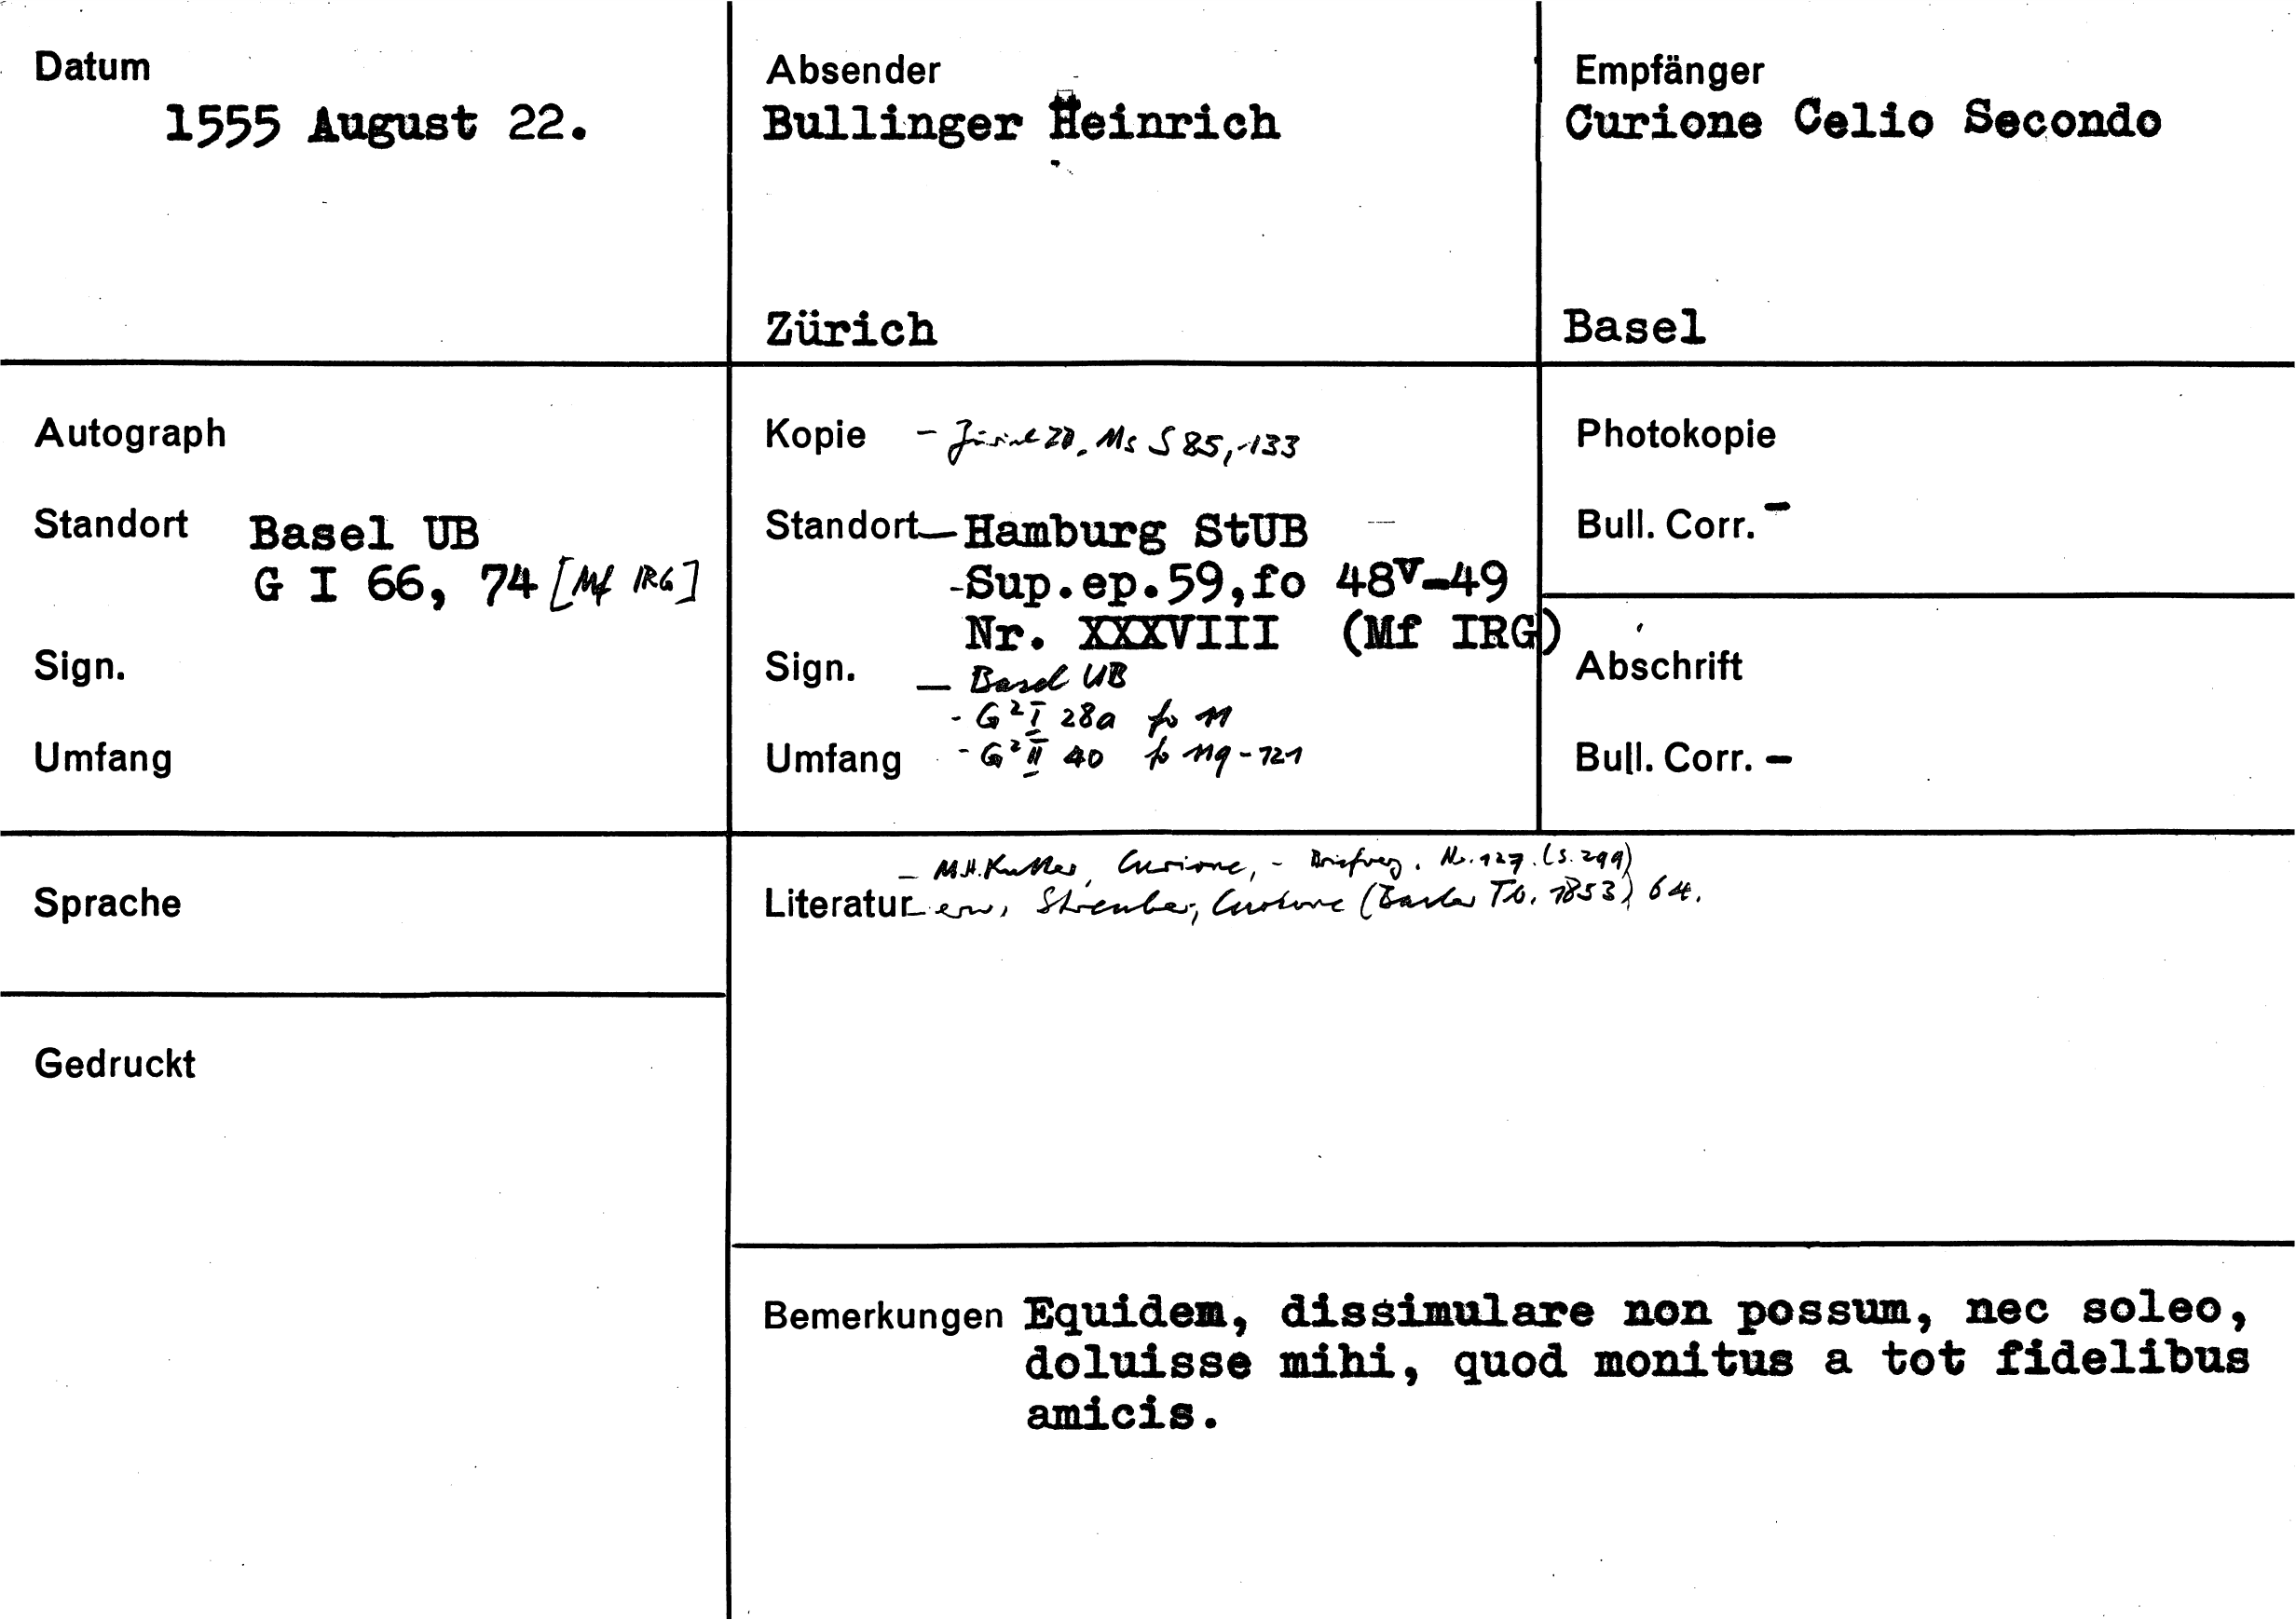 Datum
1555 August 22.
Absender
Bullinger Heinrich
Zürich
Empfänger
Curione Celio Secondo
Basel
Autograph
Standort Basel UB
G I 66, 74 [Mf IRG]
Sign.
Umfang
Kopie - Zürich ZB, Ms S 85, 133
Standort - Hamburg StUB
-Sup.ep.59,fo 48v-49
Nr. XXXVIII (Mf IRG)
Sign. - Basel UB
- G² I 28a fo 11
Umfang - G² II 40 fo 119-121
Photokopie
Bull. Corr. -
Abschrift
Bull. Corr. -
Sprache
Gedruckt
- M.H. Kutter, Curione, - Briefverz. Nr. 127. (S. 299)
Literatur - erw. Streuber, Curione (Basler Tb. 1853) 64.
Bemerkungen Equidem, dissimulare non possum, nec soleo,
doluisse mihi, quod monitus a tot fidelibus
amicis.